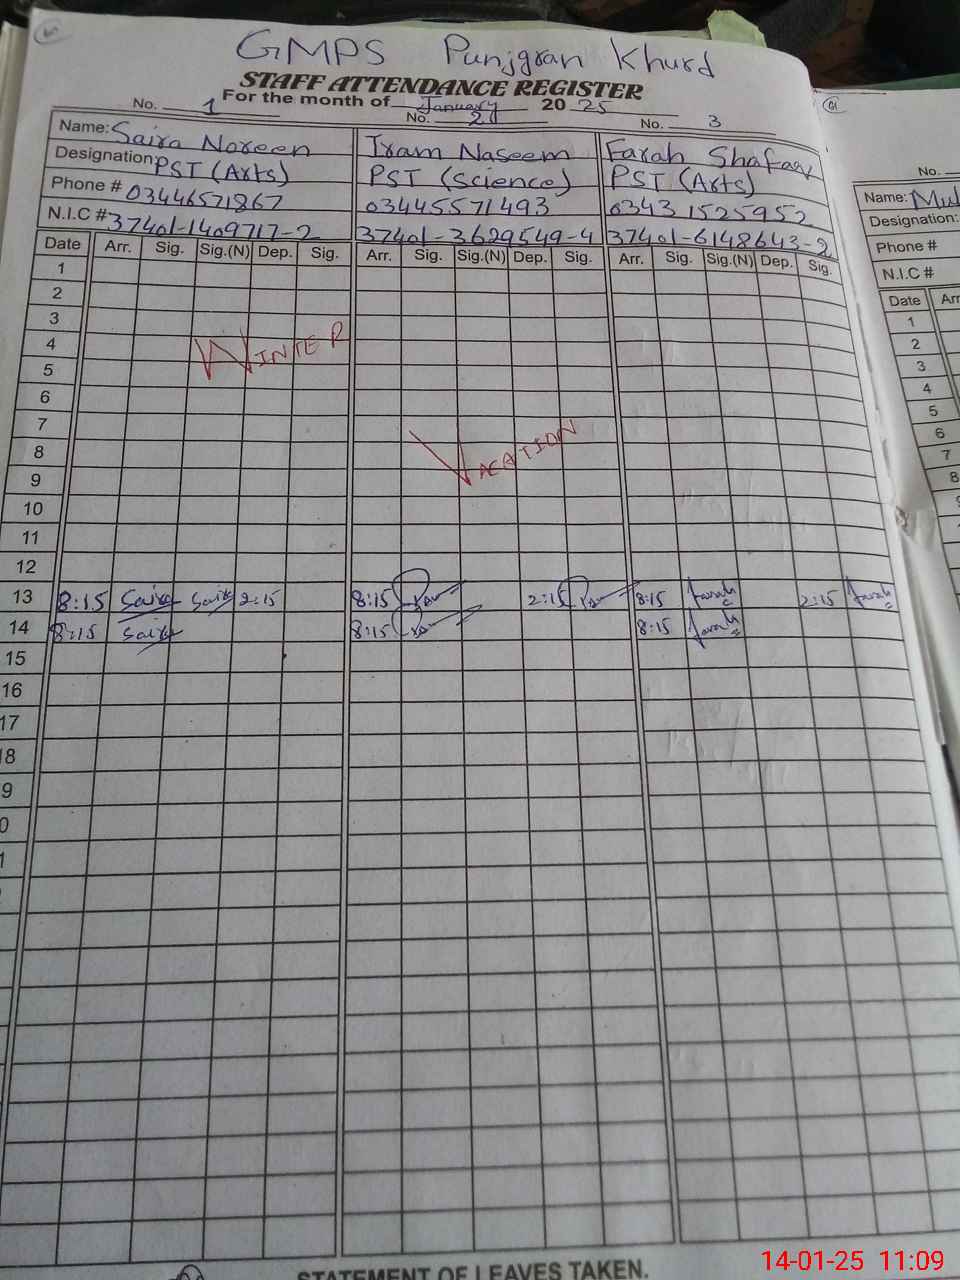 GMPS Punjgran Khurd
STAFF ATTENDANCE REGISTER
For the month of January 2025
No. 1 No. 2 No. 3
Name: Saira Noreen Iram Naseem Farah Shafaq
Designation PST (Arts) PST (Science) PST (Arts)
Phone # 03446571867 03445571493 03431525952
N.I.C # 37401-1409717-2 37401-3629549-4 37401-6148643-2
Date Arr. Sig. Sig.(N) Dep. Sig. Arr. Sig. Sig.(N) Dep. Sig. Arr. Sig. Sig.(N) Dep. Sig.
1
2
3
4
5
WINTER
6
7
8
9
VACATION
10
11
12
13 8:15 Saira Saira 2:15 8:15 2:15 8:15 Farah 2:15 Farah
14 8:15 Saira 8:15 8:15 Farah
15
16
17
18
9
0
1
STATEMENT OF LEAVES TAKEN.
No.
Name: Mu
Designation:
Phone #
N.I.C #
Date Arr
1
2
3
4
5
6
7
8
14-01-25 11:09